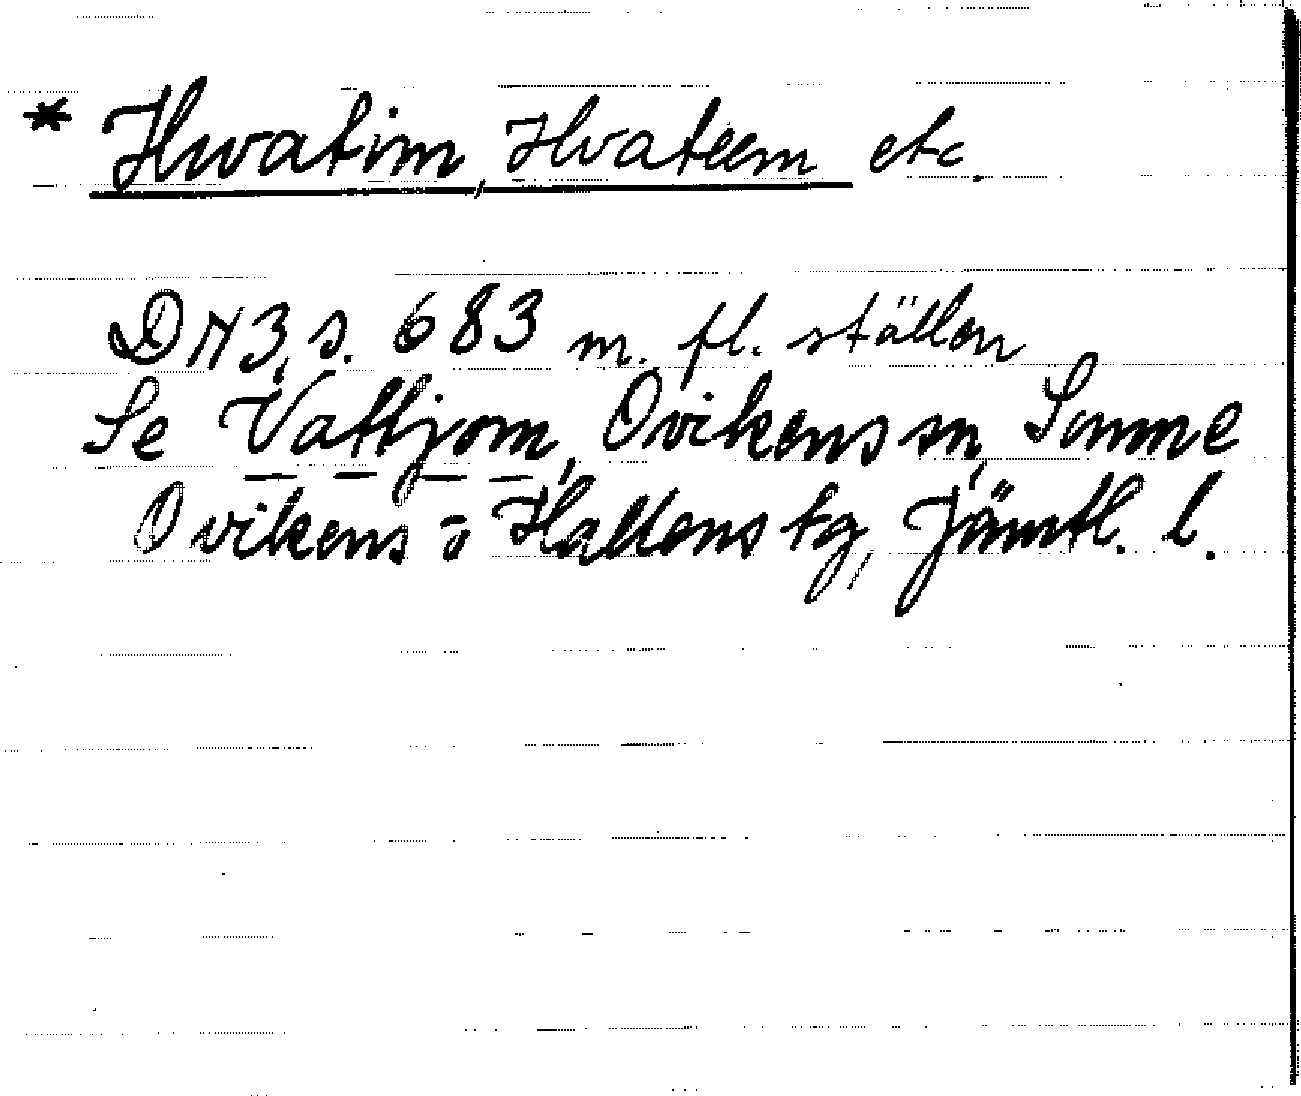 * Hwatim, Hvateem etc.
DN 3, s. 683 m. fl. ställen
Se Vattjom, Ovikens sn, Sunne
Ovikens o Hallens tg, Jämtl. l.